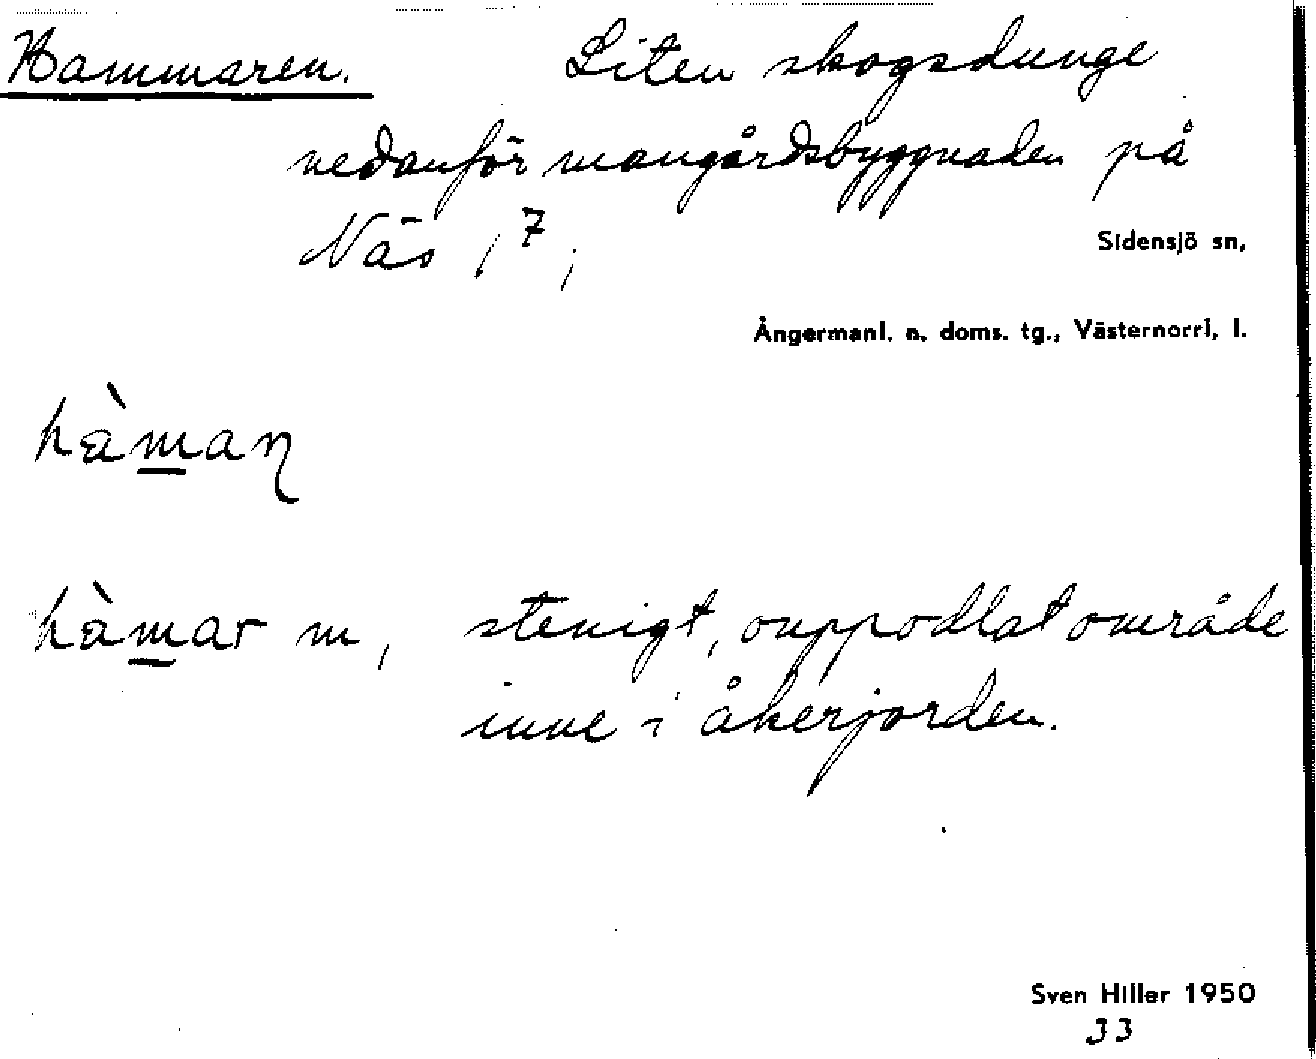 Hammaren. Liten skogsdunge
nedanför mangårdsbyggnaden på
Näs 1⁷;
Sidensjö sn,
Ångermanl. n. doms. tg., Västernorrl. l.
hàmaɳ
hàmar m, stenigt, ouppodlat område
inne i åkerjorden.
Sven Hiller 1950
33